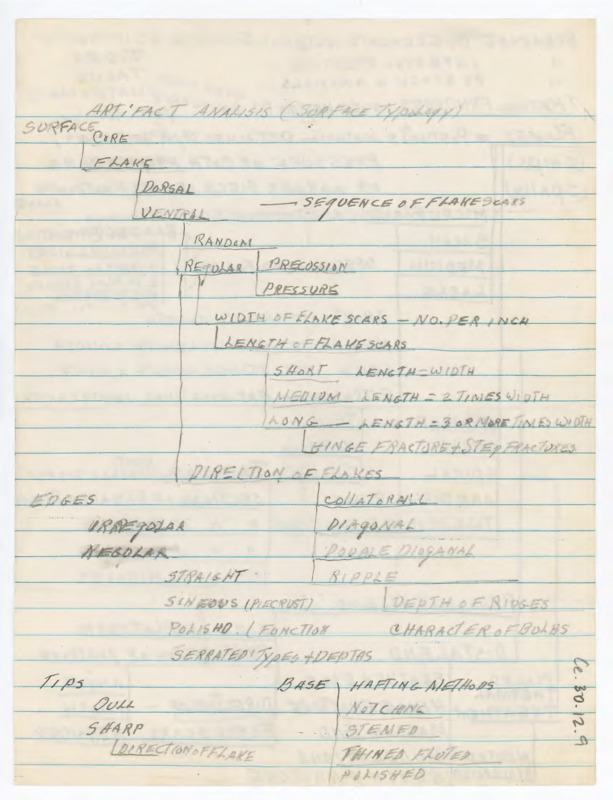 ARTIFACT ANALYSIS (SURFACE TYPOLOGY)
SURFACE
CORE
FLAKE
DORSAL
VENTRAL — SEQUENCE OF FLAKE SCARS
RANDOM
REGULAR PRECOSSION
PRESSURE
WIDTH OF FLAKE SCARS — NO. PER INCH
LENGTH OF FLAKE SCARS
SHORT LENGTH = WIDTH
MEDIUM LENGTH = 2 TIMES WIDTH
LONG — LENGTH = 3 OR MORE TIMES WIDTH
HINGE FRACTURE + STEP FRACTURES
DIRECTION OF FLAKES
EDGES COLLATORALL
IRREGOLAR DIAGONAL
REGOLAR DOUBLE DIOGANAL
STRAIGHT RIPPLE
SINEOUS (PIECRUST) DEPTH OF RIDGES
POLISHD. / FUNCTION CHARACTER OF BULBS
SERRATED! TYPES + DEPTHS
TIPS BASE HAFTING METHODS
DULL NOTCHING
SHARP STEMED
DIRECTION OF FLAKE THINED FLUTED
POLISHED
Ce.30.12.9